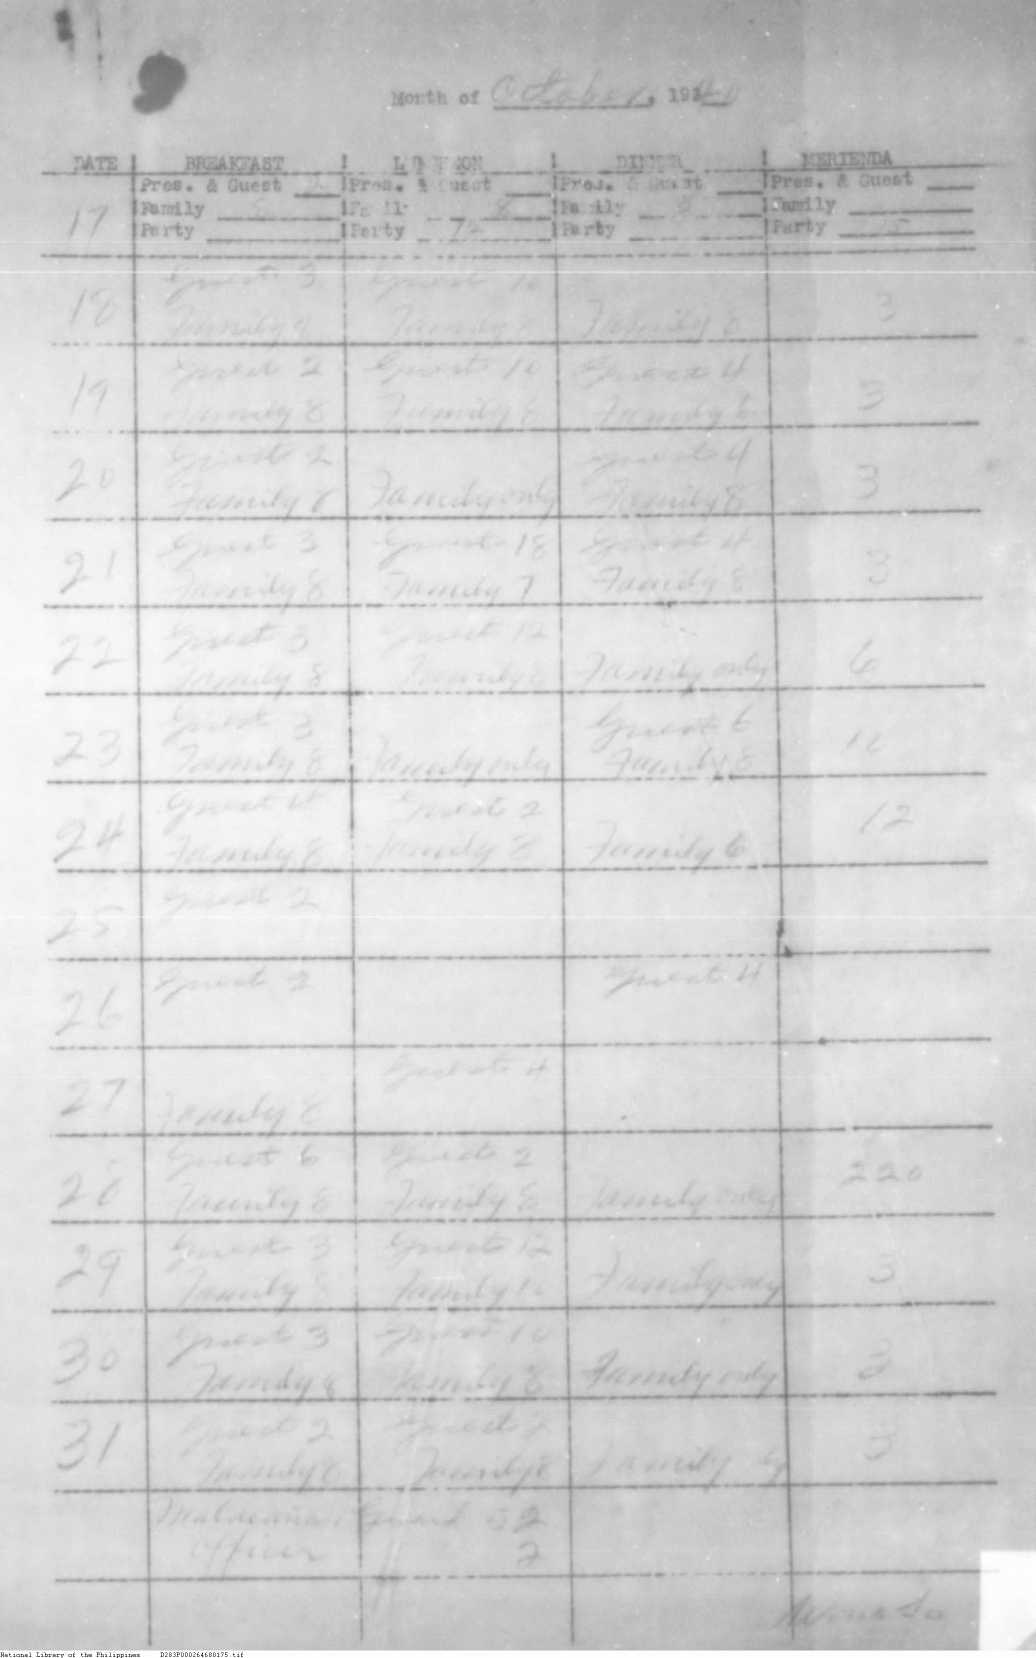 Month of October, 1940
DATE BREAKFAST LUNCHEON DINNER MERIENDA
Pres. & Guest Pres. & Guest Pres. & Guest Pres. & Guest
17 Family 8 Family 8 Family 8 Family
Party Party 72 Party Party 15
Guest 3 Guest 10
18 Family Family Family 8 3
Guest 2 Guest 10 Guest 4
19 Family 8 Family 8 Family 3
Guest 2 Guest 4
20 Family 8 Family only Family 8 3
Guest 3 Guest 18 Guest 4
21 Family 8 Family 7 Family 8 3
Guest 3 Guest 12
22 Family 8 Family Family only 6
Guest 3 Guest 6
23 Family 8 Family only Family 8
Guest 4 Guest 2 12
24 Family 8 Family 8 Family 6
Guest 2
25
Guest 2 Guest 4
26
Guest 4
27 Family 8
Guest 6 Guest 2 220
28 Family 8 Family 8 Family only
Guest 3 Guest 12
29 Family 8 Family Family only 3
Guest 3 Guest 10
30 Family 8 Family 8 Family only 3
Guest 2 Guest 2
31 Family 8 Family 8 Family 3
Malacañan Guard 32
Officer 2
National Library of the Philippines D283P000264680175.tif